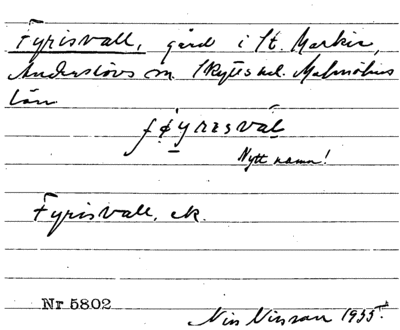 Fyrisvall, gård i St. Markie,
Anderslövs sn. Skytts hd. Malmöhus
län
Nytt namn!
Fyrisvall, ek.
Nr 5802
Nils Nilsson 1935.